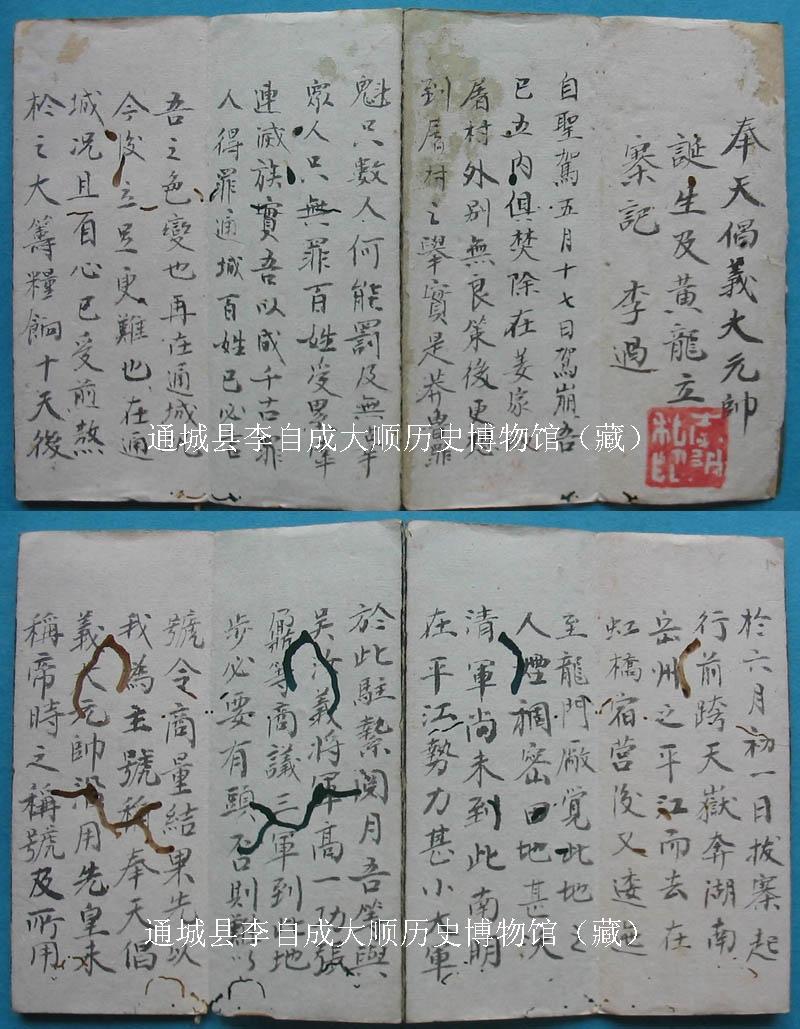 奉天倡義大元帥
誕生及黃龍立
寨記 李過
自聖駕五月十七日駕崩吾
已五内俱焚除在姜家
屠村外別無良策後更
到屠村之舉實是莽 罪
魁只數人何能罰及無辜
眾人只無罪百姓受累
連滅族實吾以成千古罪
人得罪通城百姓已必
吾之色變也再在通城
今後立足更難也在通
城況且百心已受煎熬
於之大籌糧餉十天後
通城县李自成大顺历史博物馆（藏）
於六月初一日拔寨起
行前跨天嶽奔湖南
岳州之平江而去在
虹橋宿營後又逶迤
至龍門廠覺此地之
人煙稠密田地甚沃
清軍尚未到此南明
在平江勢力甚小大軍
於此駐紮閱月吾等與
吳汝義將軍高一功張
鼐等商議三軍到此地
步必要有頭否則無以
號令商量結果先以
我為主號稱奉天倡
義大元帥沿用先皇未
稱帝時之稱號及所用
通城县李自成大顺历史博物馆（藏）